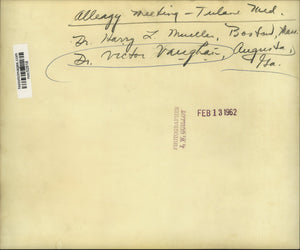 Allergy meeting - Tulane Med.
Dr. Harry L Mueller, Boston, Mass
Dr. Victor Vaughan, Augusta,
Ga.
FEB 13 1962